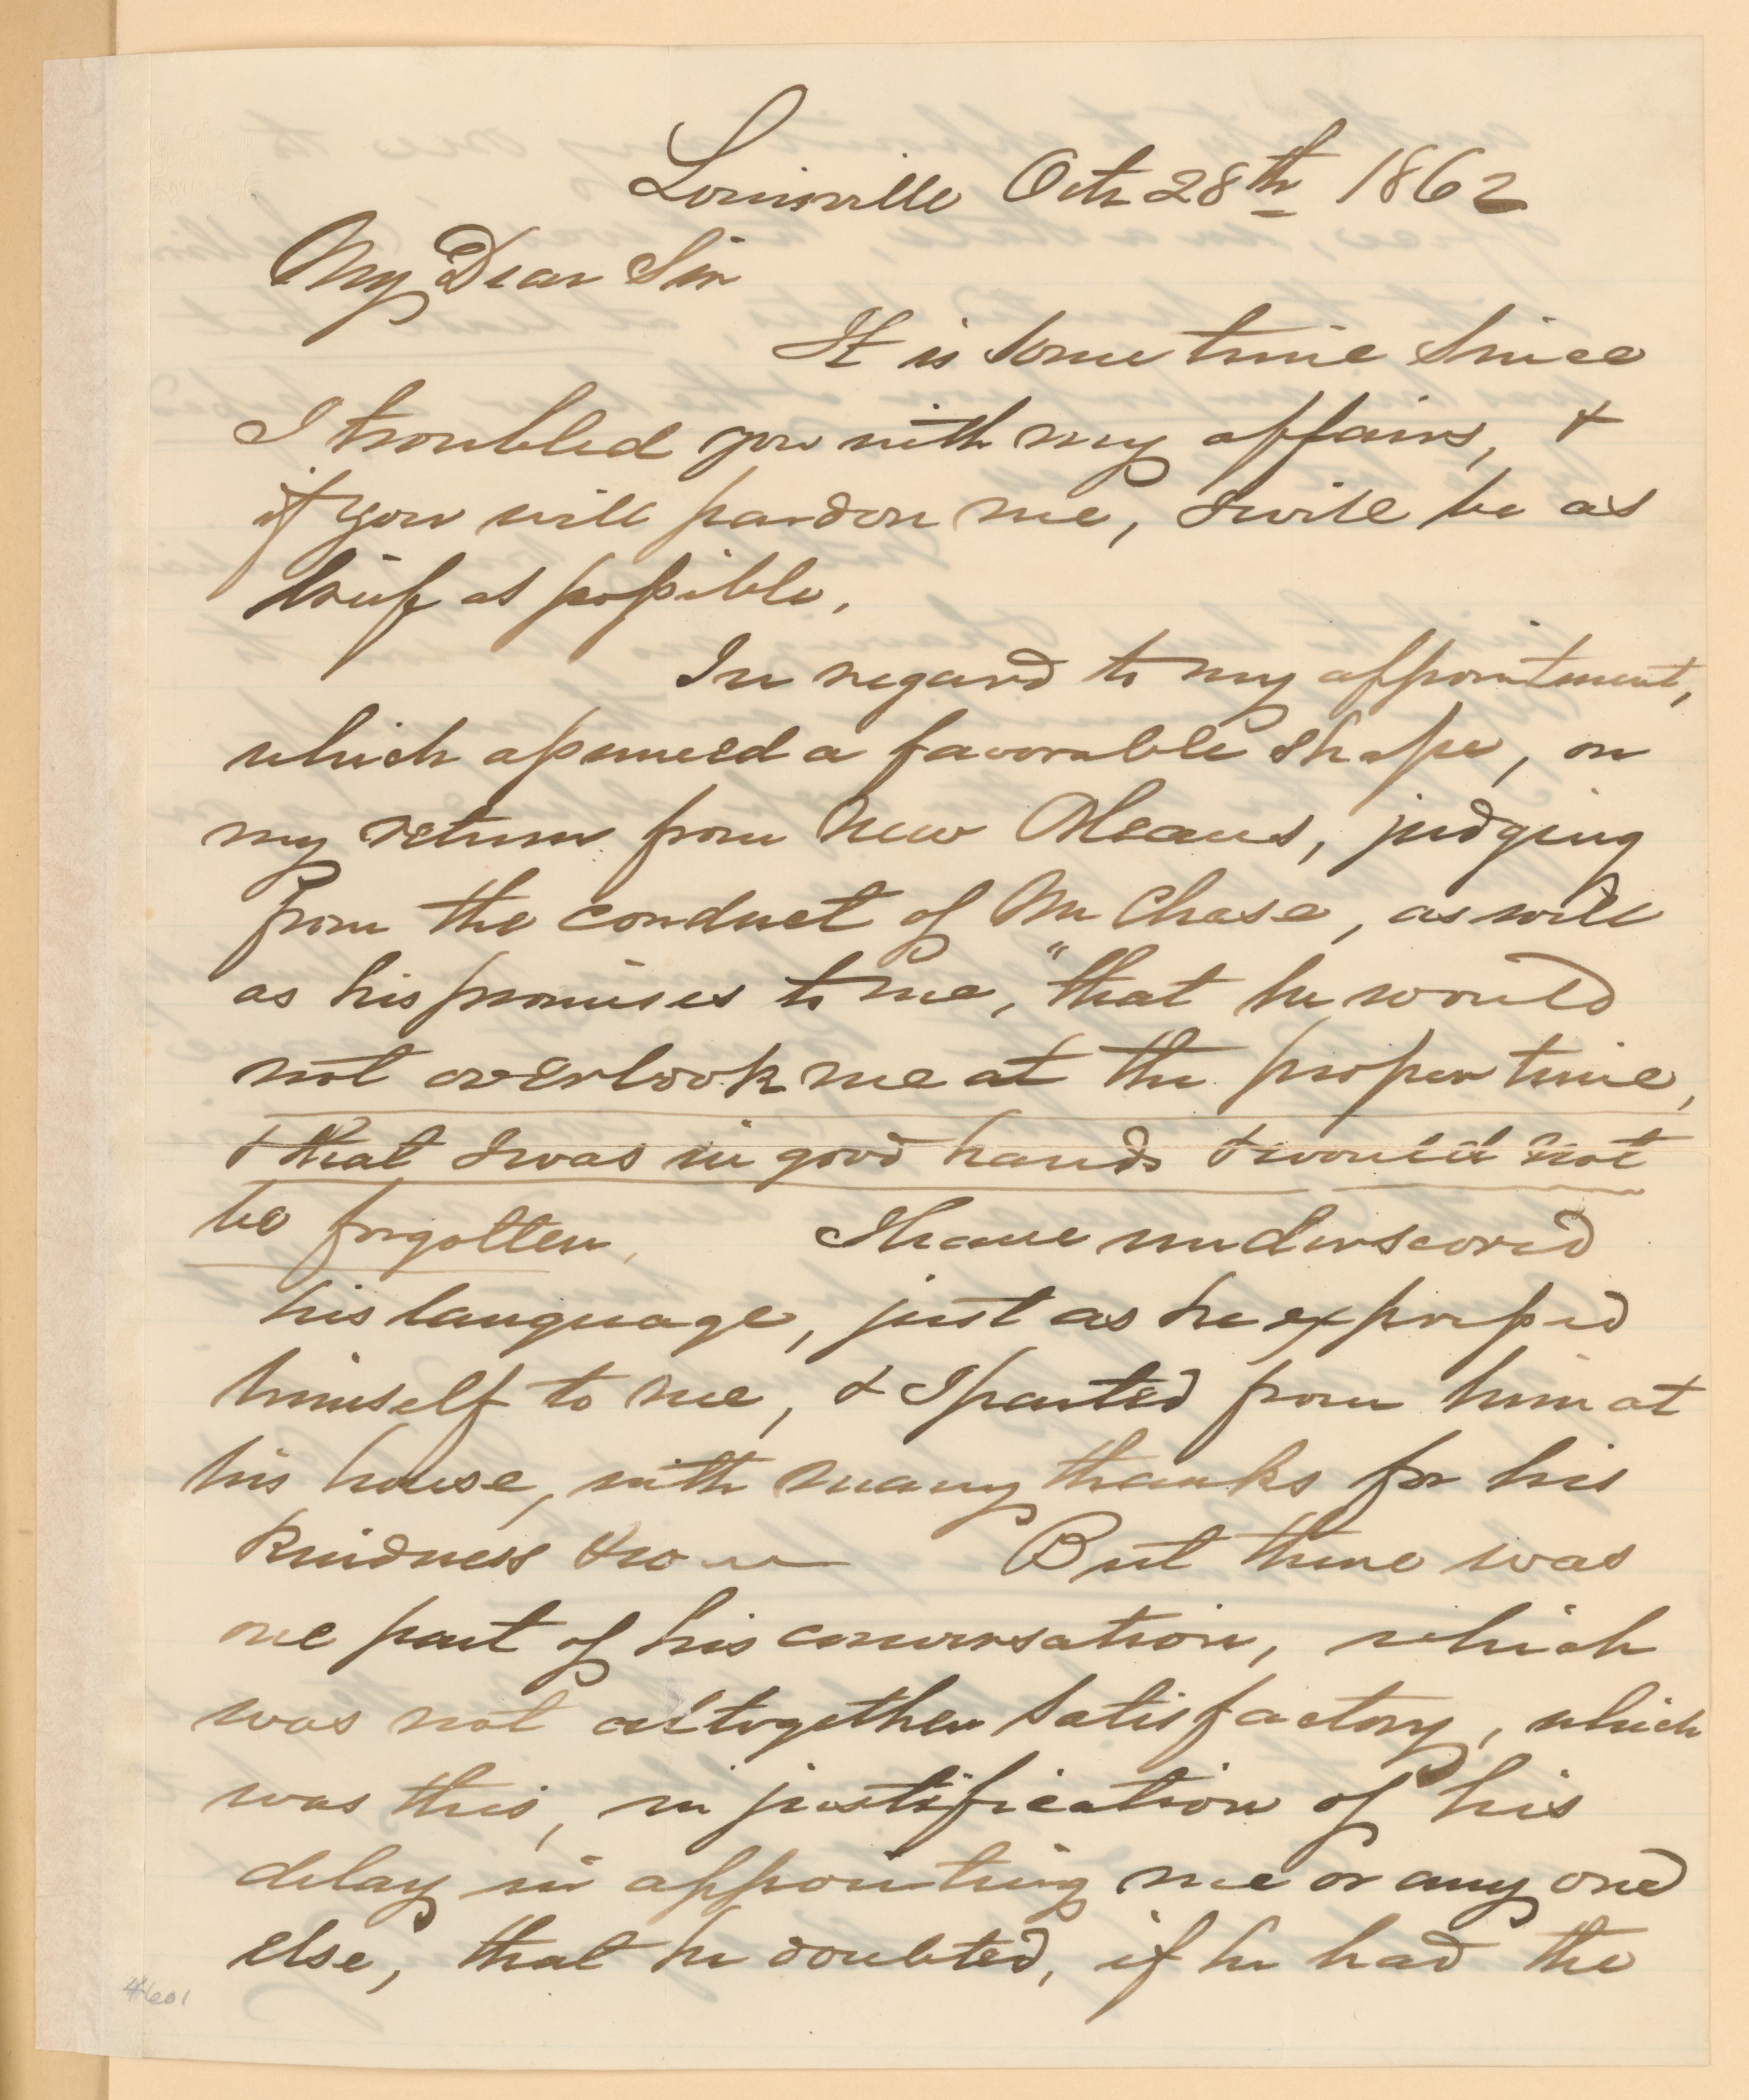 Louisville Octr 28th 1862
My Dear Sir
It is some time since
I troubled you with my affairs, &
if you will pardon me, I will be as
brief as possible.
In regard to my appointment,
which assumed a favorable shape, on
my return from New Orleans, judging
from the conduct of Mr Chase, as well
as his promises to me, "that he would
not overlook me at the proper time,
& that I was in good hands & would not
be forgotten. I have underscored
his language, just as he expressed
himself to me, & I parted from him at
his house, with many thanks for his
kindness But there was
one part of his conversation, which
was not altogether satisfactory, which
was this, in justification of his
delay in appointing me or any one
else, that he doubted, if he had the